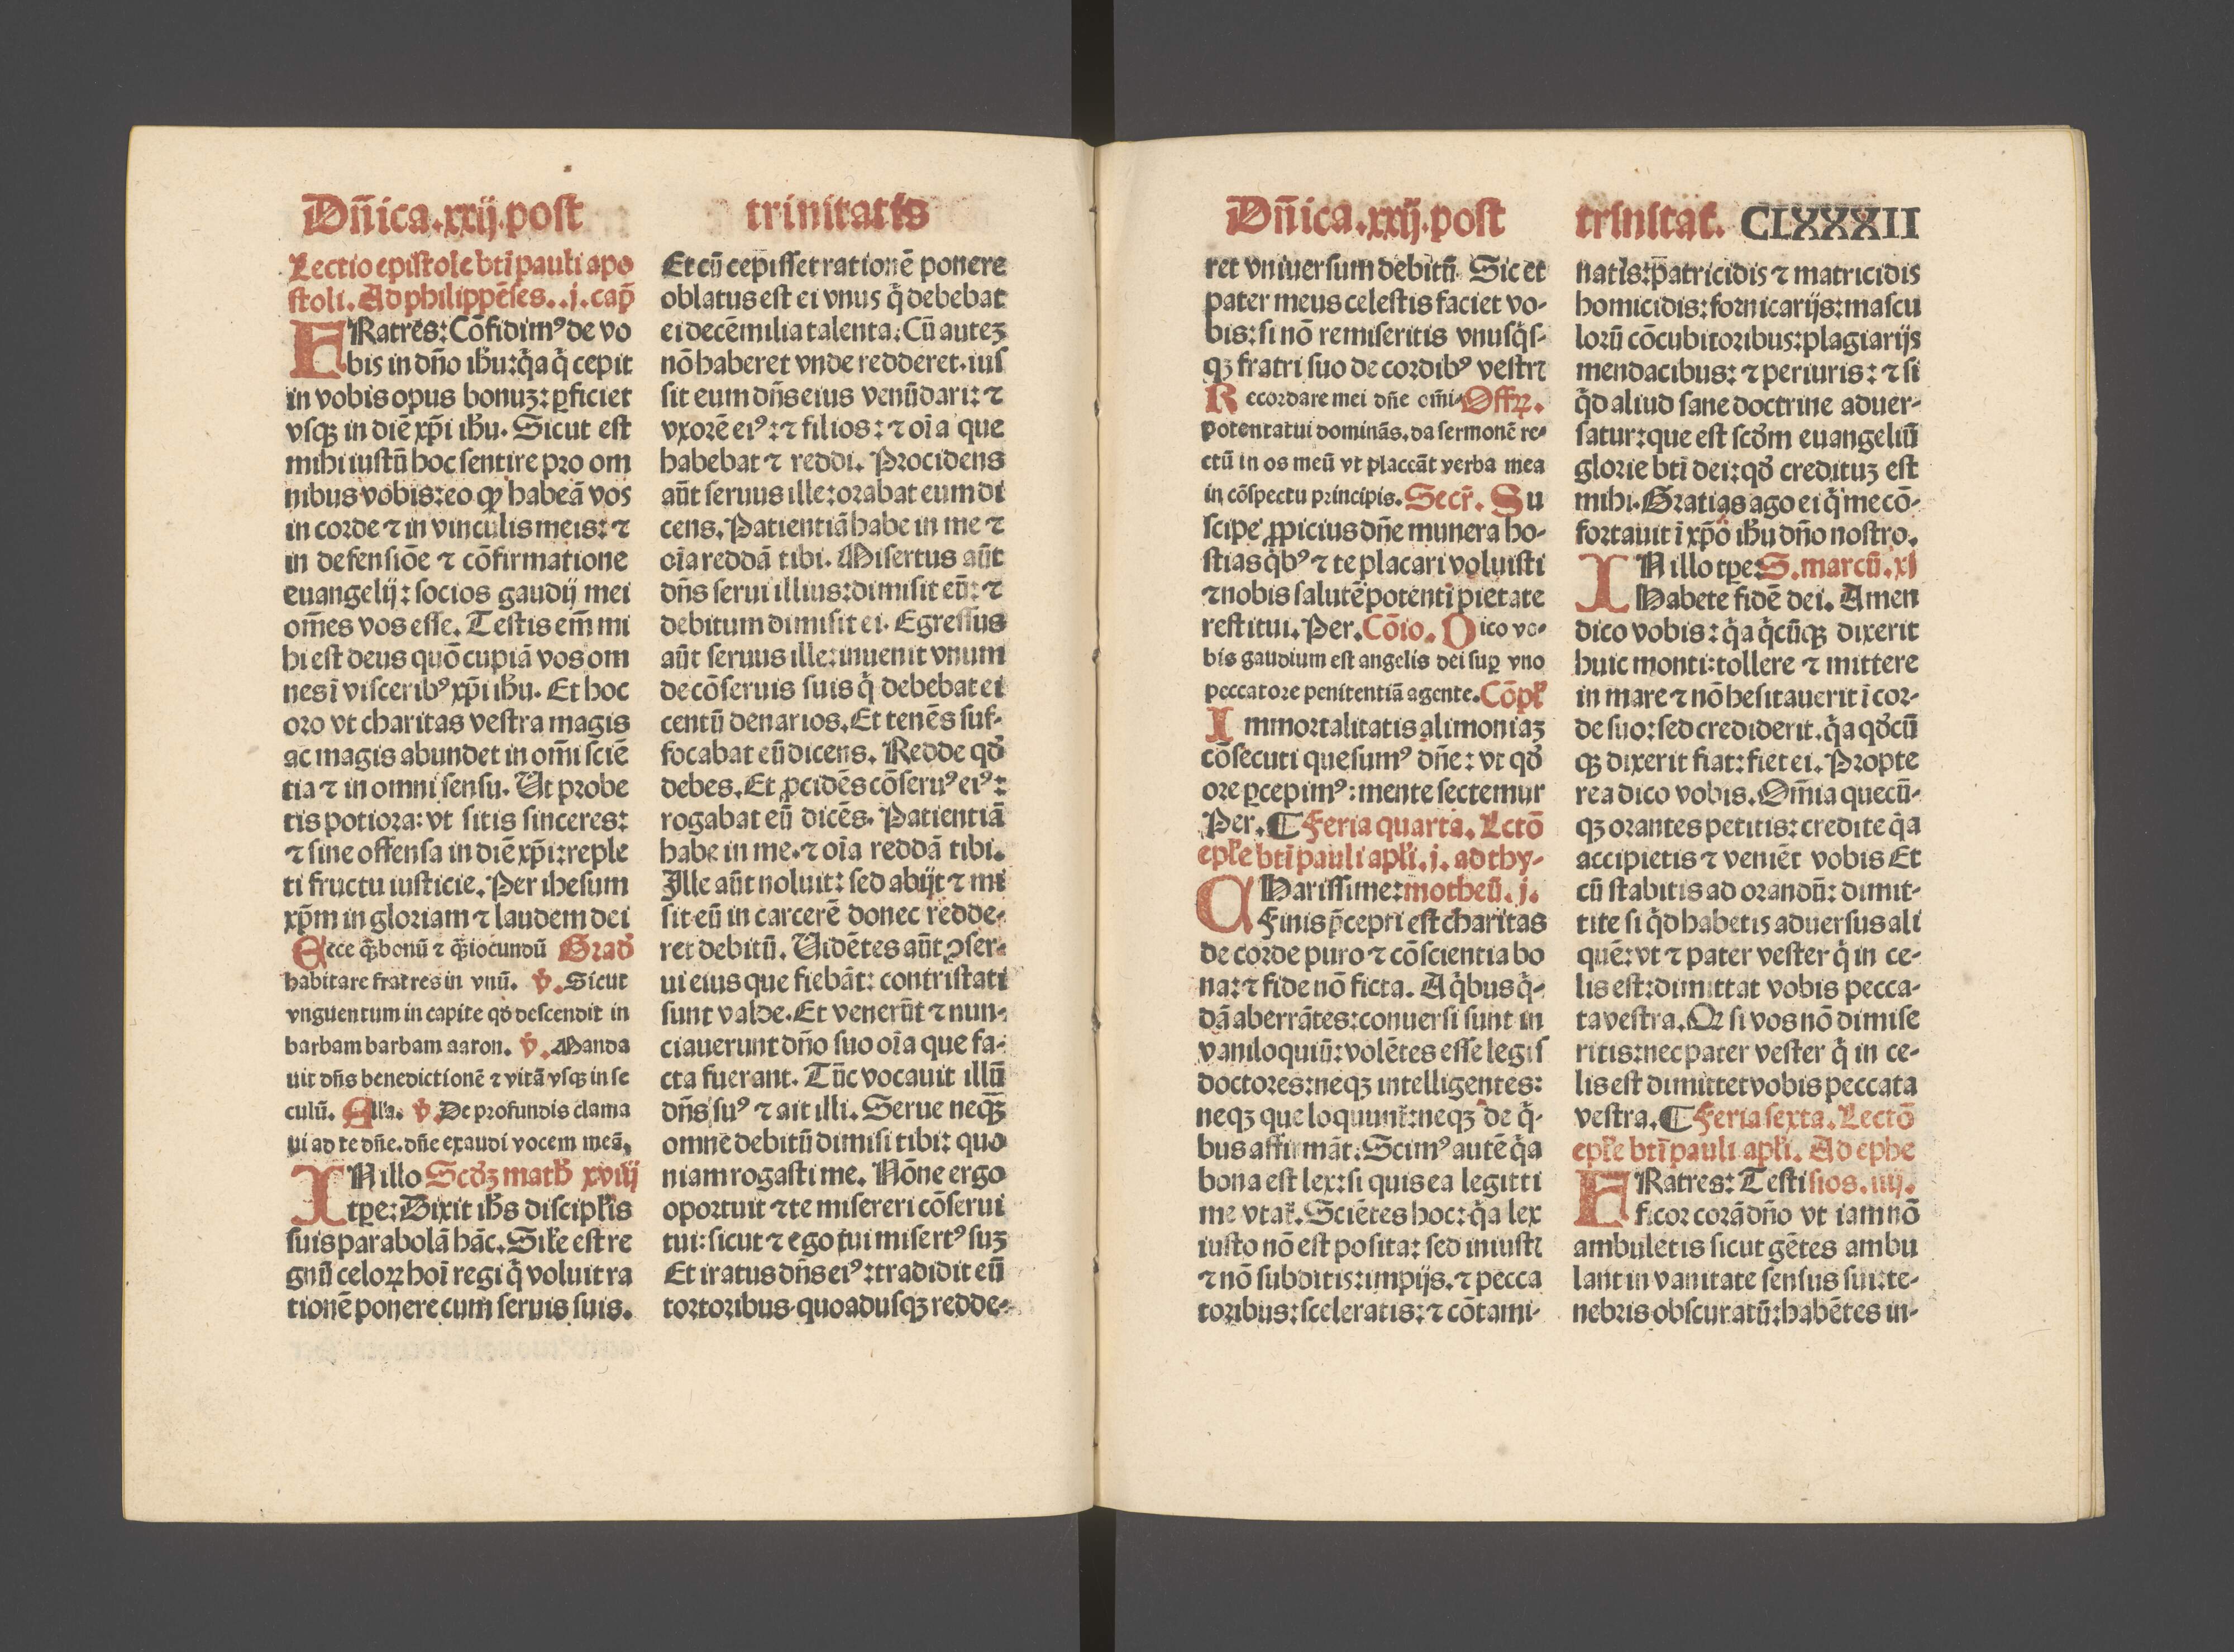 Dñica.xxij.post trinitatis
Lectio epistole bti pauli apo
stoli. Ad philippēses..j.cap̄
FRatres: Cōfidimꝰ de vo
bis in dño ihu: q̇a q̇ cepit
in vobis opus bonuʒ: ꝑficiet
vsqʒ in diē xp̄i ihu. Sicut est
mihi iustū hoc sentire pro om
nibus vobis: eo ꝙ habeā vos
in corde ⁊ in vinculis meis: ⁊
in defensiōe ⁊ cōfirmatione
euangelij: socios gaudij mei
om̄es vos esse. Testis em̄ mi
hi est deus quō cupiā vos om
nes ī visceribꝰ xp̄i ihu. Et hoc
oro vt charitas vestra magis
ac magis abundet in om̄i sciē
tia ⁊ in omni sensu. Ut probe
tis potiora: vt sitis sinceres:
⁊ sine offensa in diē xp̄i: reple
ti fructu iusticie. Per ihesum
xp̄m in gloriam ⁊ laudem dei
Ecce q̄ʒ bonū ⁊ q̄ʒ iocundū Grad̛
habitare fratres in vnū. ℣. Sicut
vnguentum in capite qd̛ descendit in
barbam barbam aaron. ℣. Manda
uit dñs benedictionē ⁊ vitā vsqʒ in se
culū. Alľa. ℣. De profundis clama
ui ad te dñe. dñe exaudi vocem meā.
INillo Scd̛ʒ math̛ xviij
tp̄e: Dixit ihs discipľis
suis parabolā hāc. Siľe est re
gnū celoꝝ hoī regi q̇ voluit ra
tionē ponere cum seruis suis.
Et cū cepisset rationē ponere
oblatus est ei vnus q̇ debebat
ei decē milia talenta: Cū auteʒ
nō haberet vnde redderet. ius
sit eum dñs eius venūdari: ⁊
vxorē eiꝰ: ⁊ filios: ⁊ oīa que
habebat ⁊ reddi. Procidens
aūt seruus ille: orabat eum di
cens. Patientiā habe in me ⁊
oīa reddā tibi. Misertus aūt
dñs serui illius: dimisit eū: ⁊
debitum dimisit ei. Egressus
aūt seruus ille: inuenit vnum
de cōseruis suis q̇ debebat ei
centū denarios. Et tenēs suf-
focabat eū dicens. Redde qd̛
debes. Et ꝓcidēs cōseruꝰ eiꝰ:
rogabat eū dicēs. Patientiā
habe in me. ⁊ oīa reddā tibi.
Ille aūt noluit: sed abijt ⁊ mi
sit eū in carcerē donec redde-
ret debitū. Uidētes aūt ꝯser-
ui eius que fiebāt: contristati
sunt valde. Et venerūt ⁊ nun-
ciauerunt dño suo oīa que fa-
cta fuerant. Tūc vocauit illū
dñs suꝰ ⁊ ait illi. Serue neq̄ʒ
omne debitū dimisi tibi: quo
niam rogasti me. Nōne ergo
oportuit ⁊ te misereri cōserui
tui: sicut ⁊ ego tui misertꝰ suʒ
Et iratus dñs eiꝰ: tradidit eū
tortoribus. quoadusqʒ redde-
Dñica.xxij.post trinitat. CLXXXII
ret vniuersum debitū. Sic et
pater meus celestis faciet vo-
bis: si nō remiseritis vnusq̇s-
qʒ fratri suo de cordibꝰ vestrꝭ
Recordare mei dñe om̄i- Offꝝ.
potentatui dominās. da sermonē re-
ctū in os meū vt placeāt verba mea
in cōspectu principis. Secr̄. Su
scipe ꝓpicius dñe munera ho-
stias q̇bꝰ ⁊ te placari voluisti
⁊ nobis salutē potenti pietate
restitui. Per. Cōio. Dico vo-
bis gaudium est angelis dei suꝑ vno
peccatore penitentiā agente. Cōpľ
Immortalitatis alimoniaʒ
cōsecuti quesumꝰ dñe: vt qd̛
ore ꝑcepimꝰ: mente sectemur
Per. ¶ Feria quarta. Lctō
epľe bti pauli apľi. j. ad thy-
CHarissime: motheū. j.
Finis p̄cepti est charitas
de corde puro ⁊ cōscientia bo
na: ⁊ fide nō ficta. A q̇bus q̇-
dā aberrātes: conuersi sunt in
vaniloquiū: volētes esse legis
doctores: neqʒ intelligentes:
neqʒ que loquunt̄: neqʒ de q̇-
bus affirmāt: Scimꝰ autē q̇a
bona est lex: si quis ea legitti
me vtat̄. Sciētes hoc: q̇a lex
iusto nō est posita: sed iniustꝭ
⁊ nō subditis: impijs. ⁊ pecca
toribus: sceleratis: ⁊ cōtami-
natis: patricidis ⁊ matricidis
homicidis: fornicarijs: mascu
lorū cōcubitoribus: plagiarijs
mendacibus: ⁊ periuris: ⁊ si
q̇d aliud sane doctrine aduer-
satur: que est scd̛m euangeliū
glorie bti dei: qd̛ credituʒ est
mihi. Gratias ago ei q̇ me cō-
fortauit ī xp̄o ihu dño nostro.
INillo tp̄e: S. marcū. xj
Habete fidē dei. Amen
dico vobis: q̇a q̇cūqʒ dixerit
huic monti: tollere ⁊ mittere
in mare ⁊ nō hesitauerit ī cor-
de suo: sed crediderit. q̇a qd̛cū
qʒ dixerit fiat: fiet ei. Propte
rea dico vobis. Om̄ia quecū-
qʒ orantes petitis: credite q̇a
accipietis ⁊ veniēt vobis Et
cū stabitis ad orandū: dimit-
tite si q̇d habetis aduersus ali
quē: vt ⁊ pater vester q̇ in ce-
lis est: dimittat vobis pecca-
ta vestra. Qꝛ si vos nō dimise
ritis: nec pater vester q̇ in ce-
lis est dimittet vobis peccata
vestra. ¶ Feria sexta. Lectō
epľe bti pauli apľi. Ad ephe
FRatres: Testi sios. iiij.
ficor corā dño vt iam nō
ambuletis sicut gētes ambu
lant in vanitate sensus sui: te-
nebris obscuratū: habētes in-